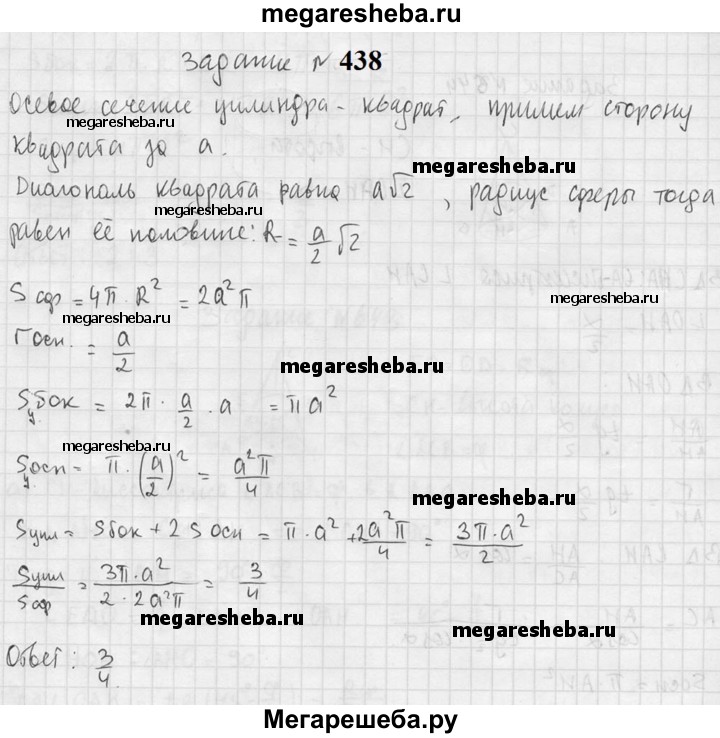 megaresheba.ru
Задание № 438
Осевое сечение цилиндра - квадрат, примем сторону
megaresheba.ru
квадрата за a.
megaresheba.ru
Диагональ квадрата равна a√2 , радиус сферы тогда
megaresheba.ru
равен её половине: R = a/2 √2
S сф = 4π · R² = 2a²π
megaresheba.ru
megaresheba.ru
r осн. = a/2
megaresheba.ru
Sц.бок = 2π · a/2 · a = πa²
megaresheba.ru
Sц.осн = π · (a/2)² = a²π/4
megaresheba.ru
Sцил = Sбок + 2 S осн = π · a² + 2a²π/4 = 3π·a²/2
megaresheba.ru
Sцил/Sсф = 3π·a²/2·2a²π = 3/4
megaresheba.ru
megaresheba.ru
Ответ: 3/4.
Мегарешеба.ру